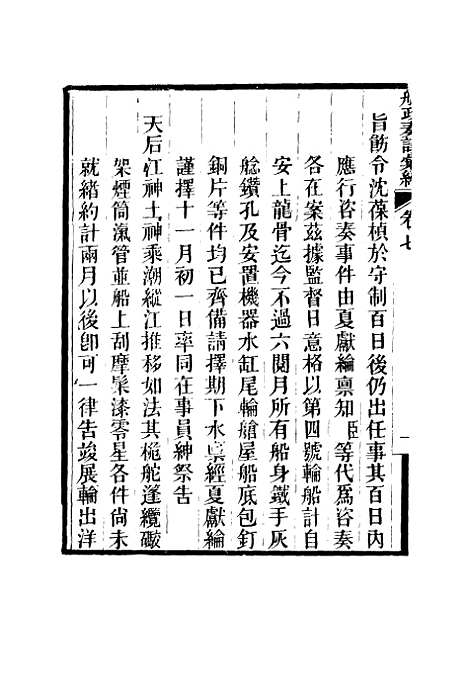 船政奏議彙編 卷七 一
旨飭令沈葆楨於守制百日後仍出任事其百日內
應行咨奏事件由夏獻綸禀知臣等代爲咨奏
各在案茲據監督日意格以第四號輪船計自
安上龍骨迄今不過六閱月所有船身鐵手灰
艌鑽孔及安置機器水缸尾輪艙屋船底包釘
銅片等件均已齊備請擇期下水禀經夏獻綸
謹擇十一月初一日率同在事員紳祭告
天后江神土神乘潮縱江推移如法其桅舵篷纜礮
架煙筒滊管並船上刮摩髹漆零星各件尚未
就緒約計兩月以後卽可一律告竣展輪出洋